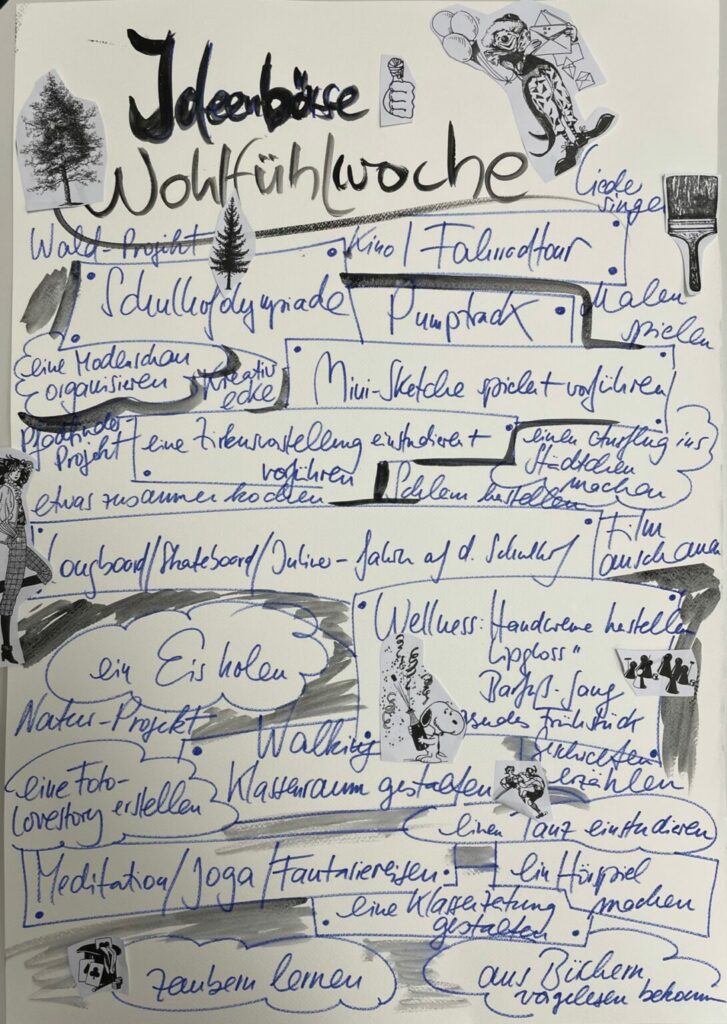 Ideenbörse
Wohlfühlwoche
Lieder
singen
Wald-Projekt
Kino / Fahrradtour
Schulhofolympiade
Pumptrack
Malen
spielen
eine Modenschau
organisieren
Kreativ
ecke
Mini-Sketche spielen + vorführen
Pfadfinder-
Projekt
eine Zirkusvorstellung einstudieren +
vorführen
einen Ausflug ins
Städtchen
machen
etwas zusammen kochen
Schleim herstellen
Longboard/Skateboard/Inliner-fahren auf d. Schulhof
Film
anschauen
ein Eis holen
Wellness: Handcreme herstellen
Lipgloss "
Barfuß-Gang
Frühstück
Natur-Projekt
Walking
Geschichten
erzählen
eine Foto-
Lovestory erstellen
Klassenraum gestalten
einen Tanz einstudieren
Meditation/Joga/Fantasiereisen
ein Hörspiel
machen
eine Klassenzeitung
gestalten
zaubern lernen
aus Büchern
vorgelesen bekommen